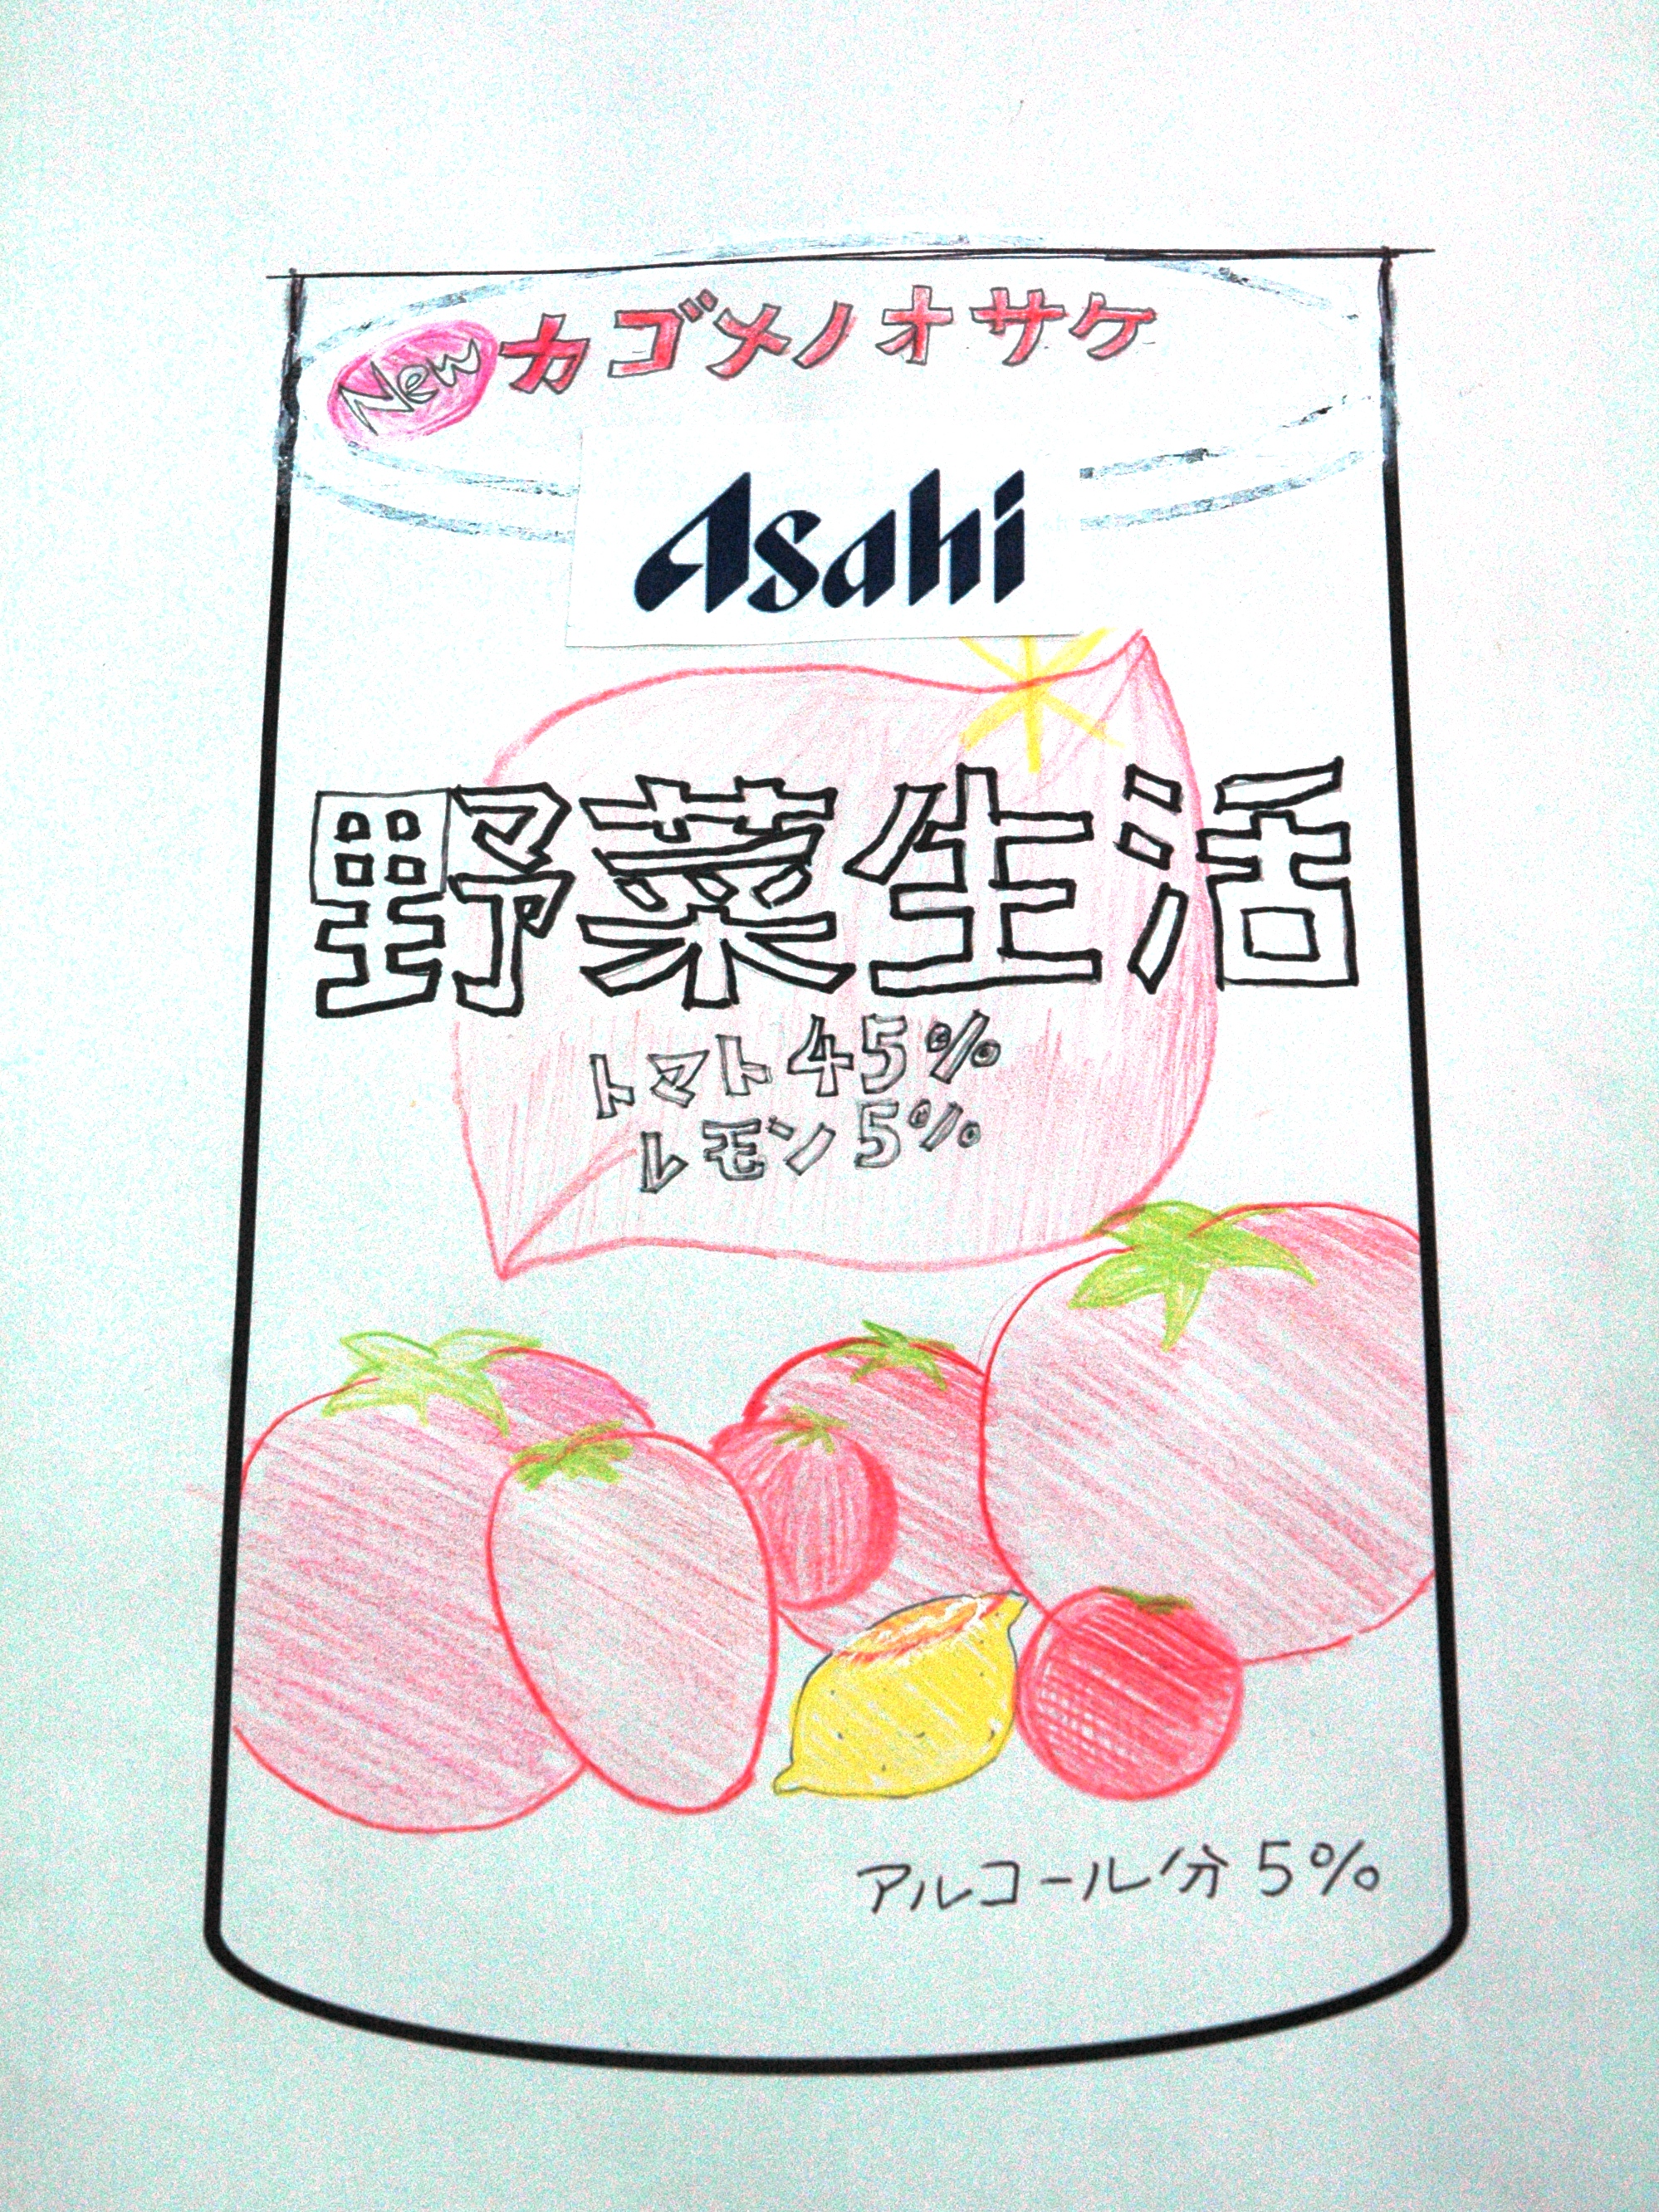 New カゴメノオサケ
Asahi
野菜生活
トマト45%
レモン5%
アルコール分5%